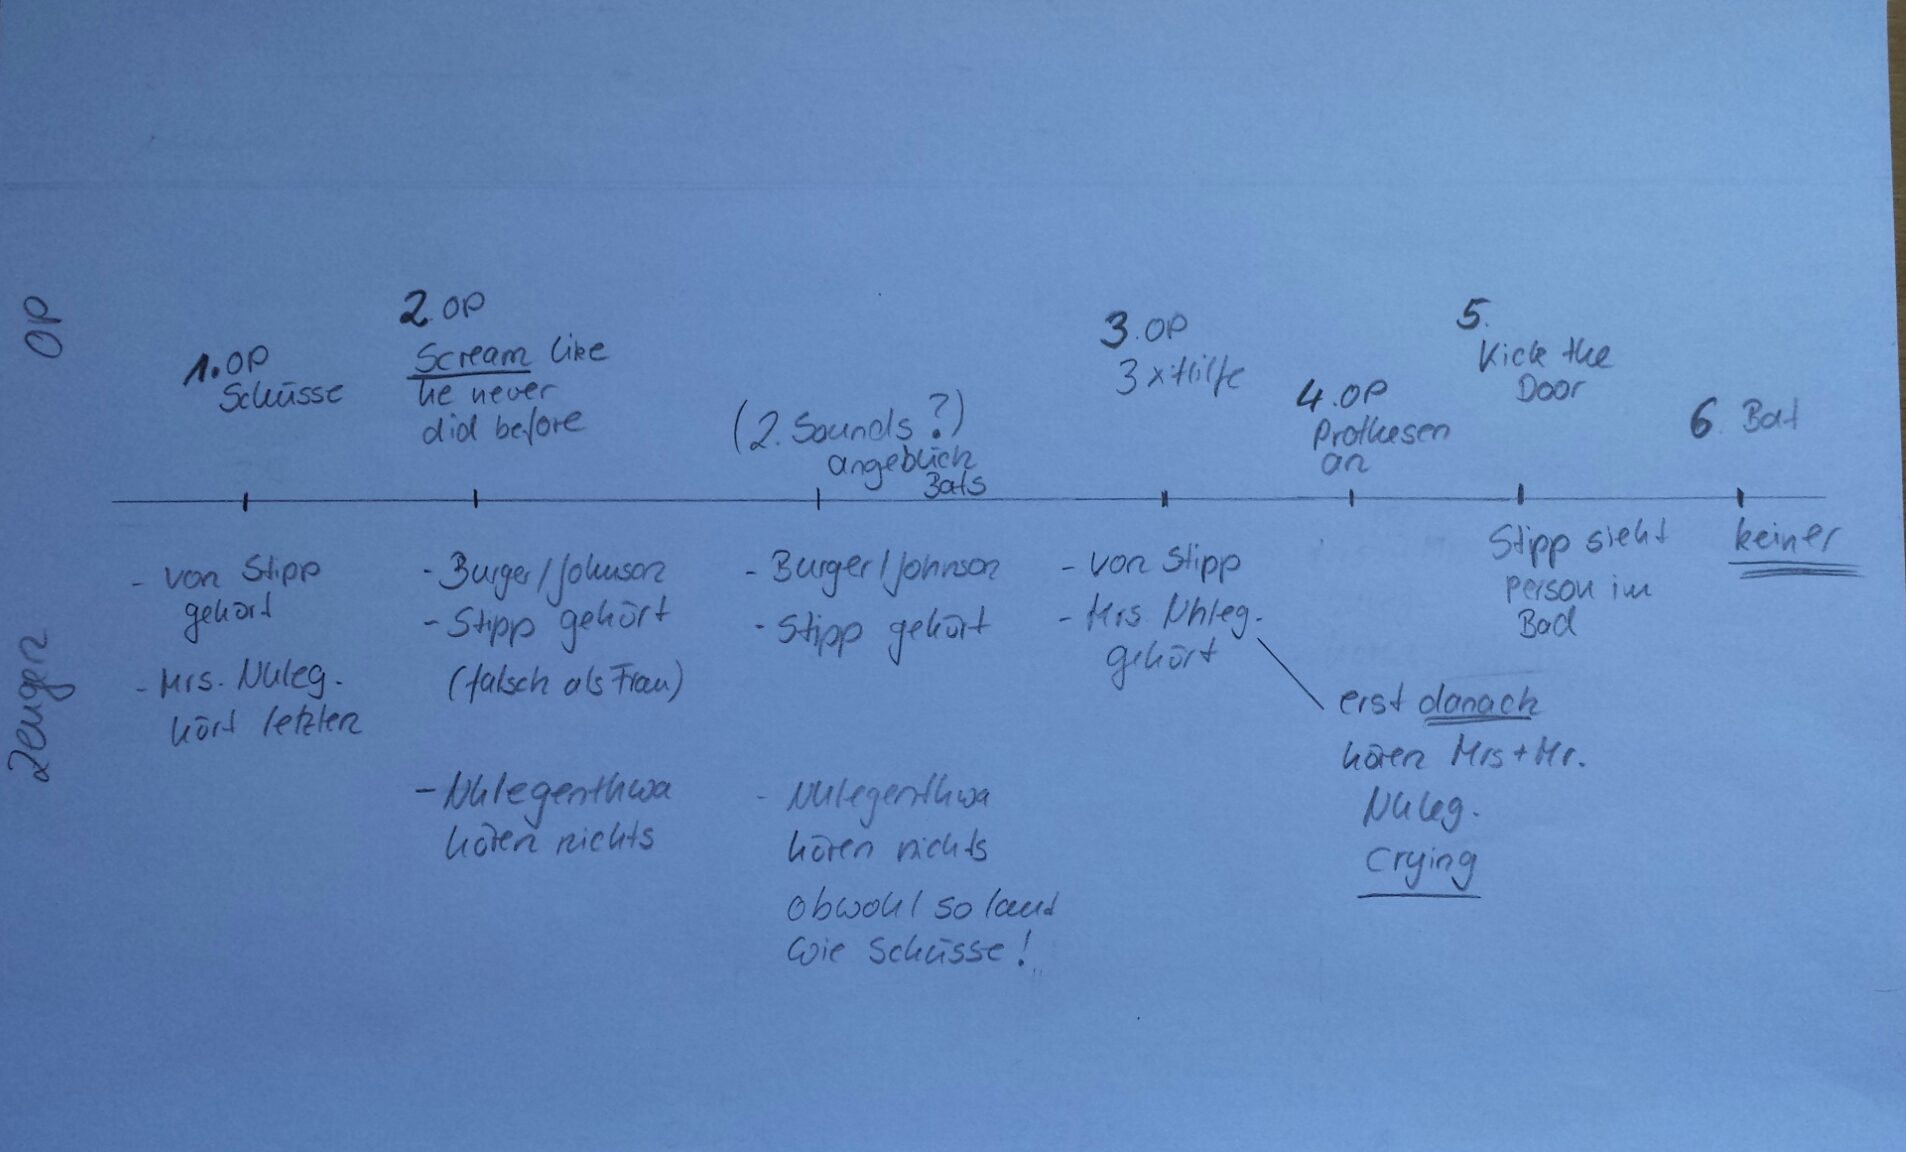 OP
1. OP
Schüsse
2. OP
Scream like
he never
did before
(2. Sounds?)
angeblich
Bats
3. OP
3 x Hilfe
4. OP
Prothesen
an
5.
Kick the
Door
6. Bat
Zeugen
- von Stipp
gehört
- Mrs. Nhleg.
hört letzten
- Burger/Johnson
- Stipp gehört
(falsch als Frau)
- Nhlegenthwa
hören nichts
- Burger/Johnson
- Stipp gehört
- Nhlegenthwa
hören nichts
obwohl so laut
wie Schüsse!
- von Stipp
- Mrs Nhleg.
gehört
erst danach
hören Mrs + Mr.
Nhleg.
Crying
Stipp sieht
Person im
Bad
keiner